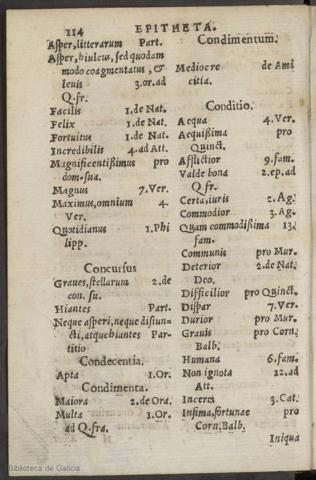 114 EPITHETA.
Asper, litterarum Part.
Asper, hiulcus, sed quodam
modo coagmentatus, &
leuis 3.or.ad
Q.fr.
Facilis 1.de Nat.
Felix 1.de Nat.
Fortuitus 1.de Nat.
Incredibilis 4.ad Att.
Magnificentißimus pro
dom.sua.
Magnus 7.Ver.
Maximus, omnium 4.
Ver.
Quotidianus 1.Phi
lipp.
Concursus
Graues, stellarum 2.de
con. su.
Hiantes Part.
Neque asperi, neque disiun-
cti, atque hiantes Par-
titio
Condecentia.
Apta 1.Or.
Condimenta.
Maiora 2.de Ora.
Multa 1.Or.
ad Q.fra.
Condimentum.
Mediocre de Ami
citia.
Conditio.
Aequa 4.Ver.
Aequißima pro
Quinct.
Afflictior 9.fam.
Valde bona 2.ep.ad
Q.fr.
Certa, iuris 2.Ag.
Commodior 3.Ag.
Quam commodißima 13.
fam.
Communis pro Mur.
Deterior 2.de Nat.
Deo.
Difficilior pro Quinct.
Dispar 7.Ver.
Durior pro Mur.
Grauis pro Corn.
Balb.
Humana 6.fam.
Non ignota 12.ad
Att.
Incerta 3.Cat.
Infima, fortunae pro
Corn.Balb.
Iniqua
Biblioteca de Galicia